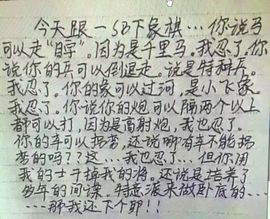 今天跟一SB下象棋…你说马
可以走"目"字。因为是千里马。我忍了。你
说你的兵可以倒退走。说是特种兵。
我忍了。你的象可以过河，是小飞象。
我忍了。你说你的炮可以隔两个以上
都可以打，因为是高射炮，我也忍了。
你的车可以拐弯，还说哪有车不能拐
弯的吗？？这…我也忍了…但你用
我的士干掉我的将。还说是培养了
多年的间谍。特意派来做卧底的…
…那我还下个耶！！